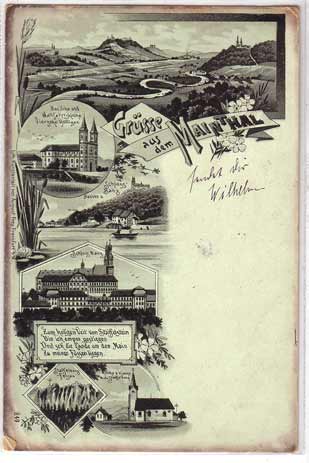 Grüsse
aus dem
Mainthal
sendet dir
Wilhelm
Basilika und
Wallfahrtskirche
Schloss
Banz
Schloss Banz
Zum heiligen Veit von Staffelstein
Bin ich empor gestiegen
Und seh' die Lande um den Main
Zu meinen Füssen liegen.
Staffelberg
Felsen